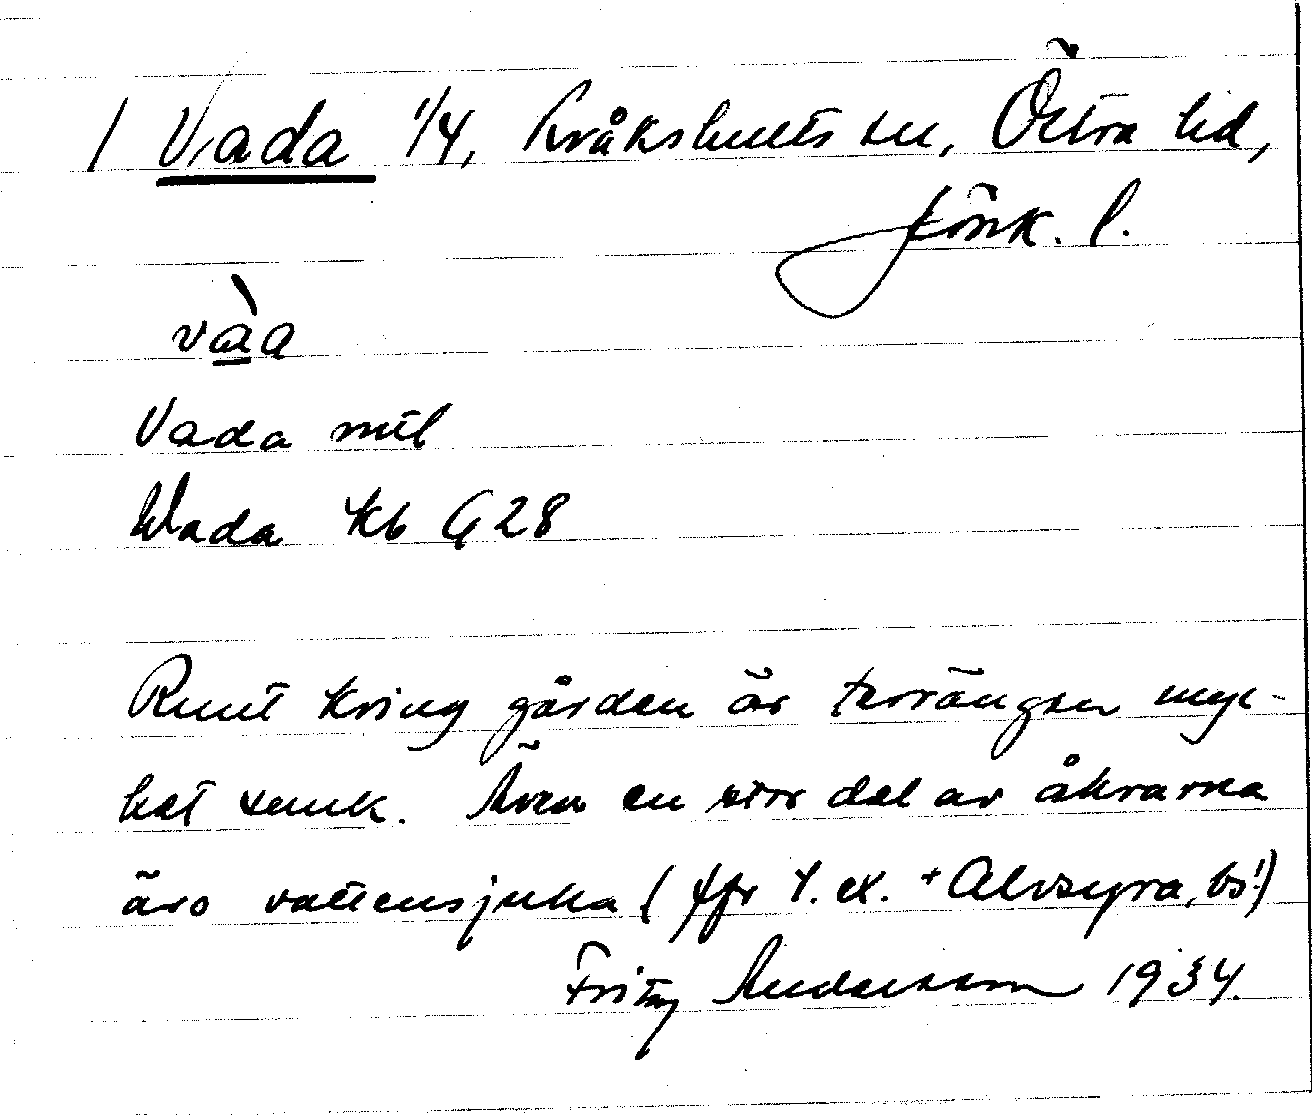 / Vada 1/4, Kråkshults sn, Östra hd,
Jönk. l.
vàa
Vada mtl
Wada Kb G 28
Runt kring gården är terrängen myc-
ket sank. Även en stor del av åkrarna
äro vattensjuka (jfr t. ex. + Alvsyra, bs!)
Fritz Andersson 1934.